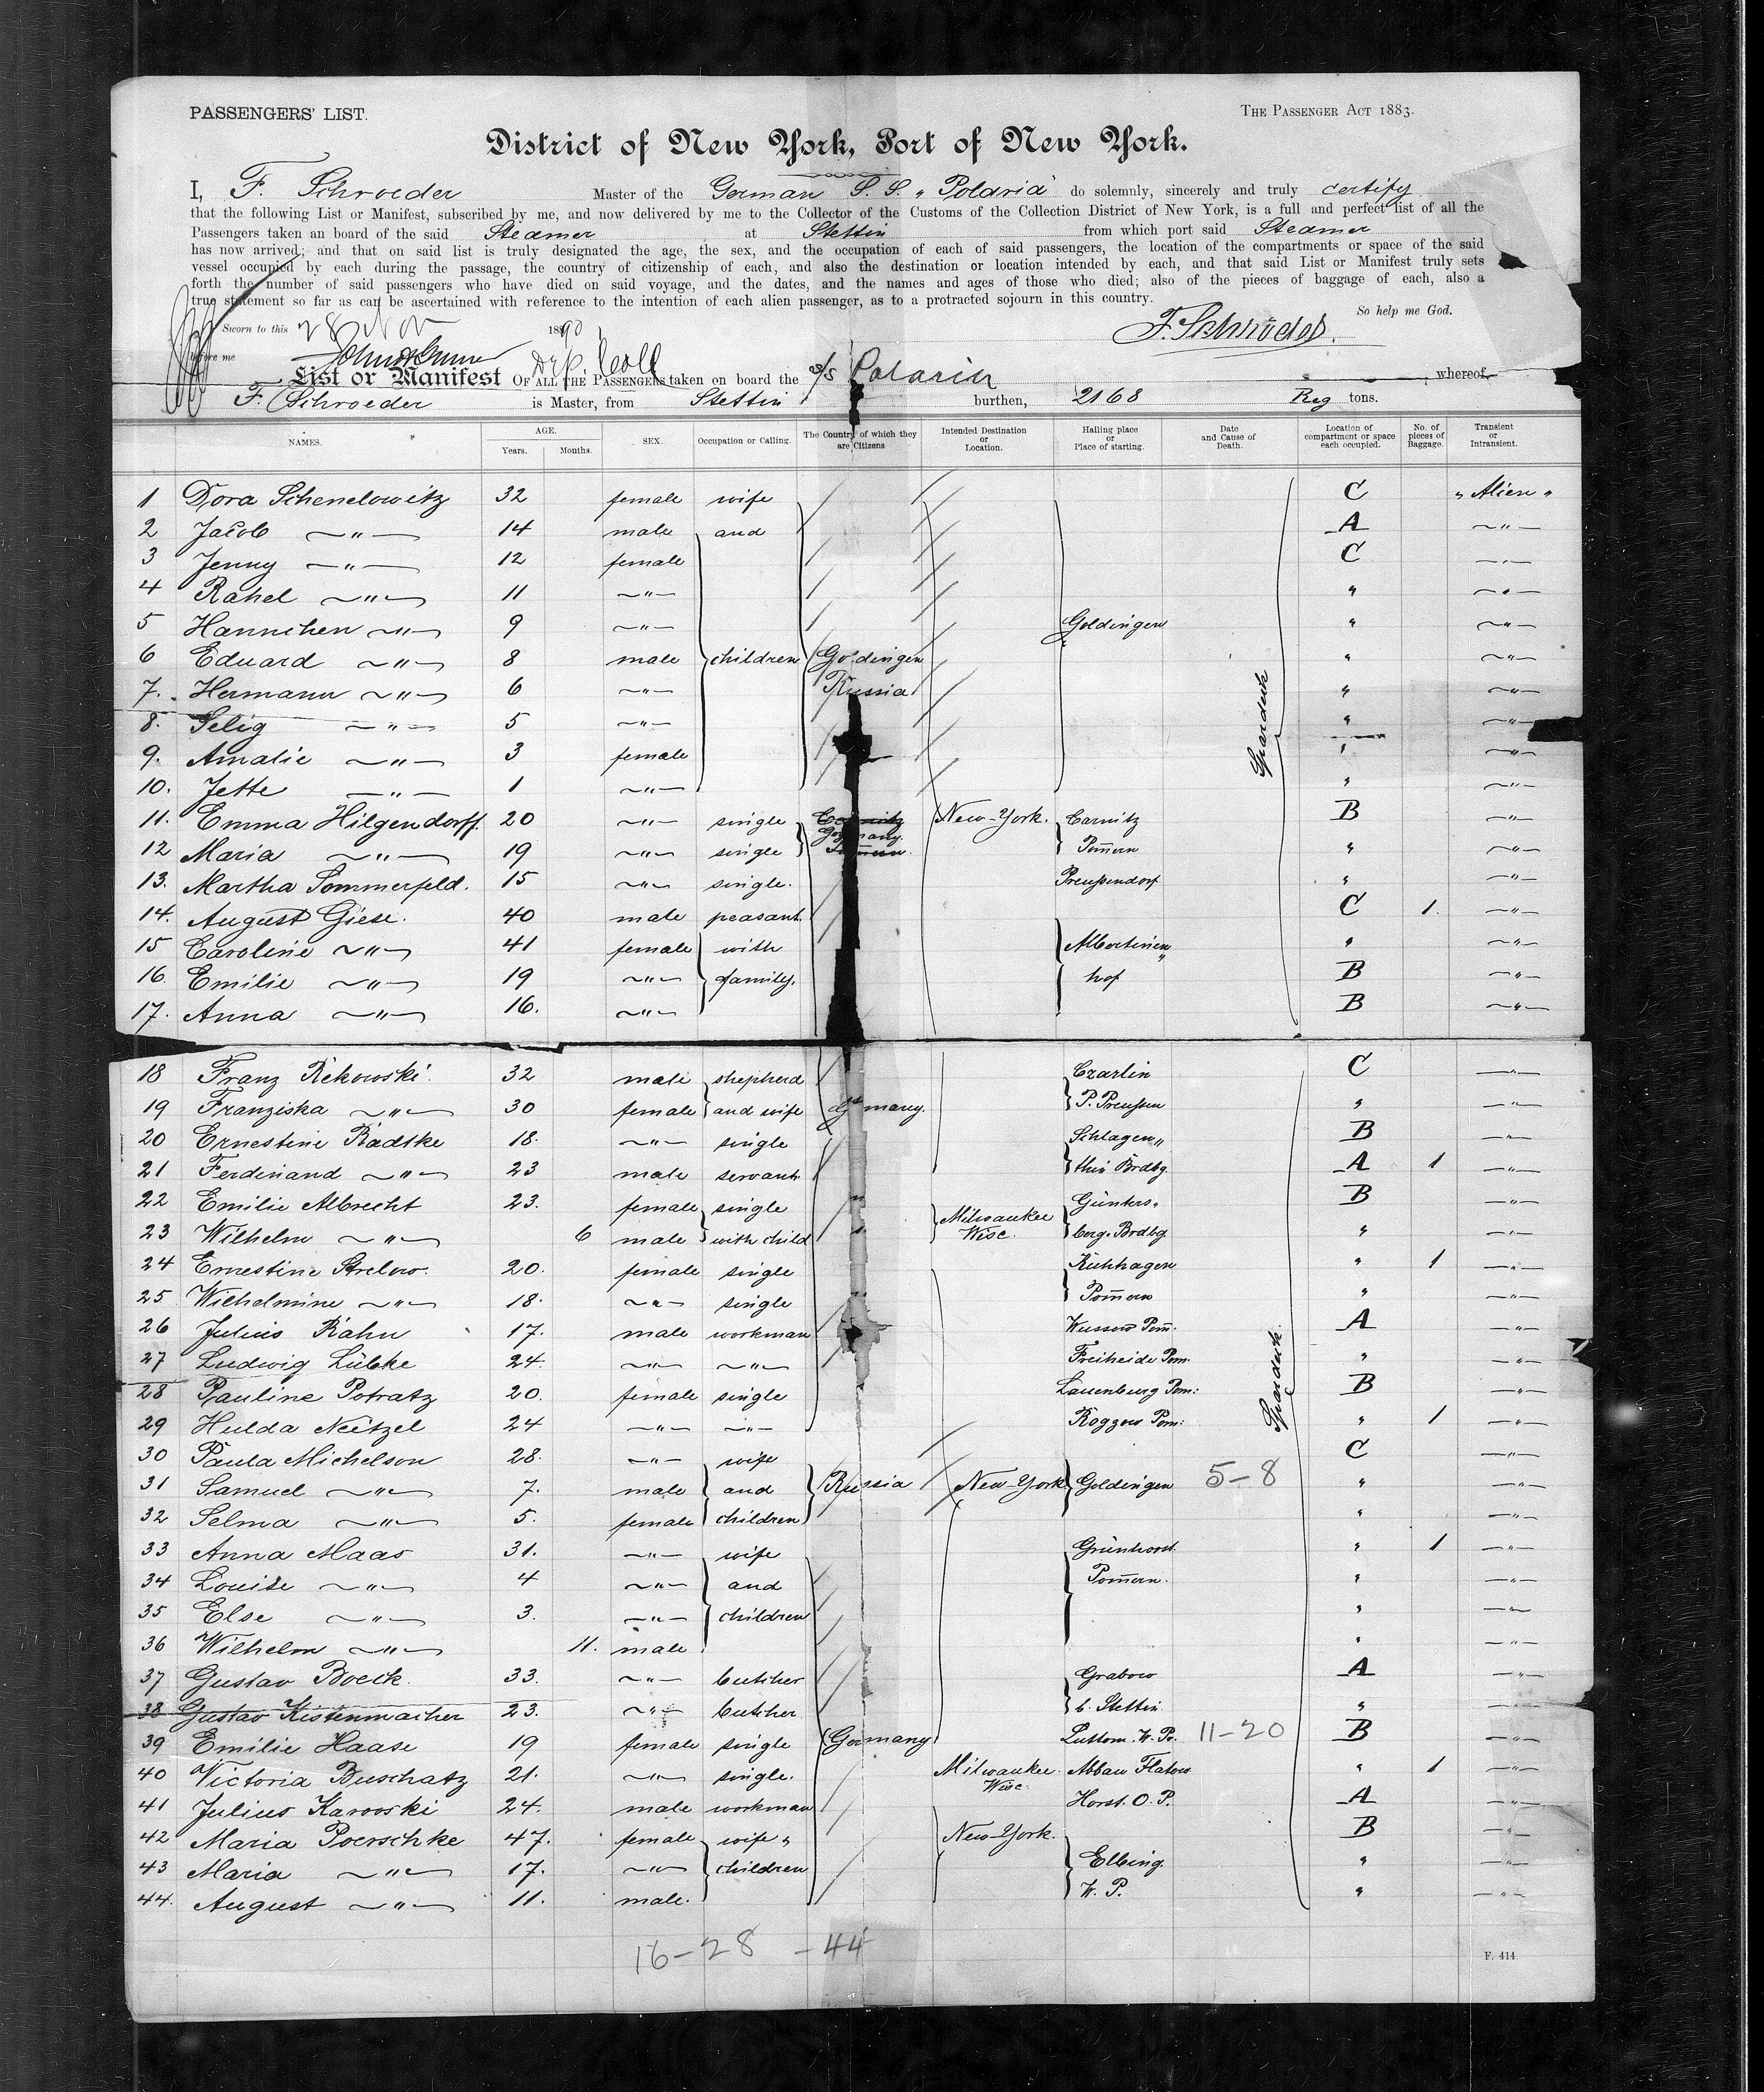 PASSENGERS' LIST.
THE PASSENGER ACT 1883.
District of New York, Port of New York.
I, F. Schroeder Master of the German S. S. „Polaria" do solemnly, sincerely and truly certify
that the following List or Manifest, subscribed by me, and now delivered by me to the Collector of the Customs of the Collection District of New York, is a full and perfect list of all the
Passengers taken an board of the said Steamer at Stettin from which port said Steamer
has now arrived; and that on said list is truly designated the age, the sex, and the occupation of each of said passengers, the location of the compartments or space of the said
vessel occupied by each during the passage, the country of citizenship of each, and also the destination or location intended by each, and that said List or Manifest truly sets
forth the number of said passengers who have died on said voyage, and the dates, and the names and ages of those who died; also of the pieces of baggage of each, also a
true statement so far as can be ascertained with reference to the intention of each alien passenger, as to a protracted sojourn in this country.
So help me God.
Sworn to this 28 Nov 1890
F. Schroeder.
before me
Dep. Coll
List or Manifest OF ALL THE PASSENGERS taken on board the s/s Polaria whereof
F. Schroeder is Master, from Stettin burthen, 2168 Reg tons.
NAMES. AGE. Years. Months. SEX. Occupation or Calling. The Country of which they are Citizens Intended Destination or Location. Hailing place or Place of starting. Date and Cause of Death. Location of compartment or space each occupied. No. of pieces of Baggage. Transient or Intransient.
1 Dora Schenelowitz 32 female wife C „ Alien „
2 Jacob —„— 14 male and A —„—
3 Jenny —„— 12 female C —„—
4 Rahel —„— 11 —„— „ —„—
5 Hannchen —„— 9 —„— Goldingen „ —„—
6 Eduard —„— 8 male children Goldingen „ —„—
7. Hermann —„— 6 —„— Russia „ —„—
8. Selig —„— 5 —„— „ —„—
9. Amalie —„— 3 female „ —„—
10. Jette —„— 1 —„— „ —„—
11. Emma Hilgendorff. 20 —„— single Carnitz New-York. Carnitz B —„—
Germany.
12 Maria —„— 19 —„— single Pommern. Pom̄ern „ —„—
13. Martha Sommerfeld. 15 —„— single. Preußendorf „ —„—
14. August Giese. 40 male peasant. C 1. —„—
15 Caroline —„— 41 female with Albertinen„ „ —„—
16. Emilie —„— 19 —„— family. hof B —„—
17. Anna —„— 16. —„— B —„—
Spardeck
18 Franz Rekowski. 32 male shepherd Czarlin C —„—
19 Franziska —„— 30 female and wife Germany. P. Preußen „ —„—
20 Ernestine Radtke 18. —„— single Schlagen„ B —„—
21 Ferdinand —„— 23 male servant thin Brdbg. A 1 —„—
22 Emilie Albrecht 23. female single Günters„ B —„—
23 Wilhelm —„— 6 male with child Milwaukee Wisc. berg. Brdbg. „ —„—
24 Ernestine Strelow. 20. female single Kuhhagen „ 1 —„—
25 Wilhelmine —„— 18. —„— single Pom̄ern „ —„—
26 Julius Rahn 17. male workman Wussow Pom̄. A —„—
27 Ludwig Lübke 24. —„— —„— Freiheide Pom. „ —„—
28 Pauline Potratz 20. female single Lauenburg Pom: B —„—
29 Hulda Neitzel 24 —„— —„— Roggow Pom: „ 1 —„—
30 Paula Michelson 28. —„— wife C —„—
31 Samuel —„— 7. male and Russia New-York Goldingen 5-8 „ —„—
32 Selma —„— 5. female children „ —„—
33 Anna Maas 31. —„— wife Grünhorst „ 1 —„—
34 Louise —„— 4 —„— and Pom̄ern. „ —„—
35 Else —„— 3. —„— children „ —„—
36 Wilhelm —„— 11. male „ —„—
37 Gustav Boeck. 33. —„— butcher Grabow A —„—
38 Gustav Kistenmacher 23. —„— butcher b. Stettin. „ —„—
39 Emilie Haase 19 female single Germany Luttom. W. Pr. 11-20 B —„—
40 Victoria Buschatz 21. —„— single. Milwaukee. Wisc. Abbau Flatow „ 1 —„—
41 Julius Karowski 24. male workman Horst. O. P. A —„—
42 Maria Poerschke 47. female wife „ New-York. B —„—
43 Maria —„— 17. —„— children Elbing. „ —„—
44. August —„— 11. male. W. P. „ —„—
Spardeck.
16-28 -44
F. 414